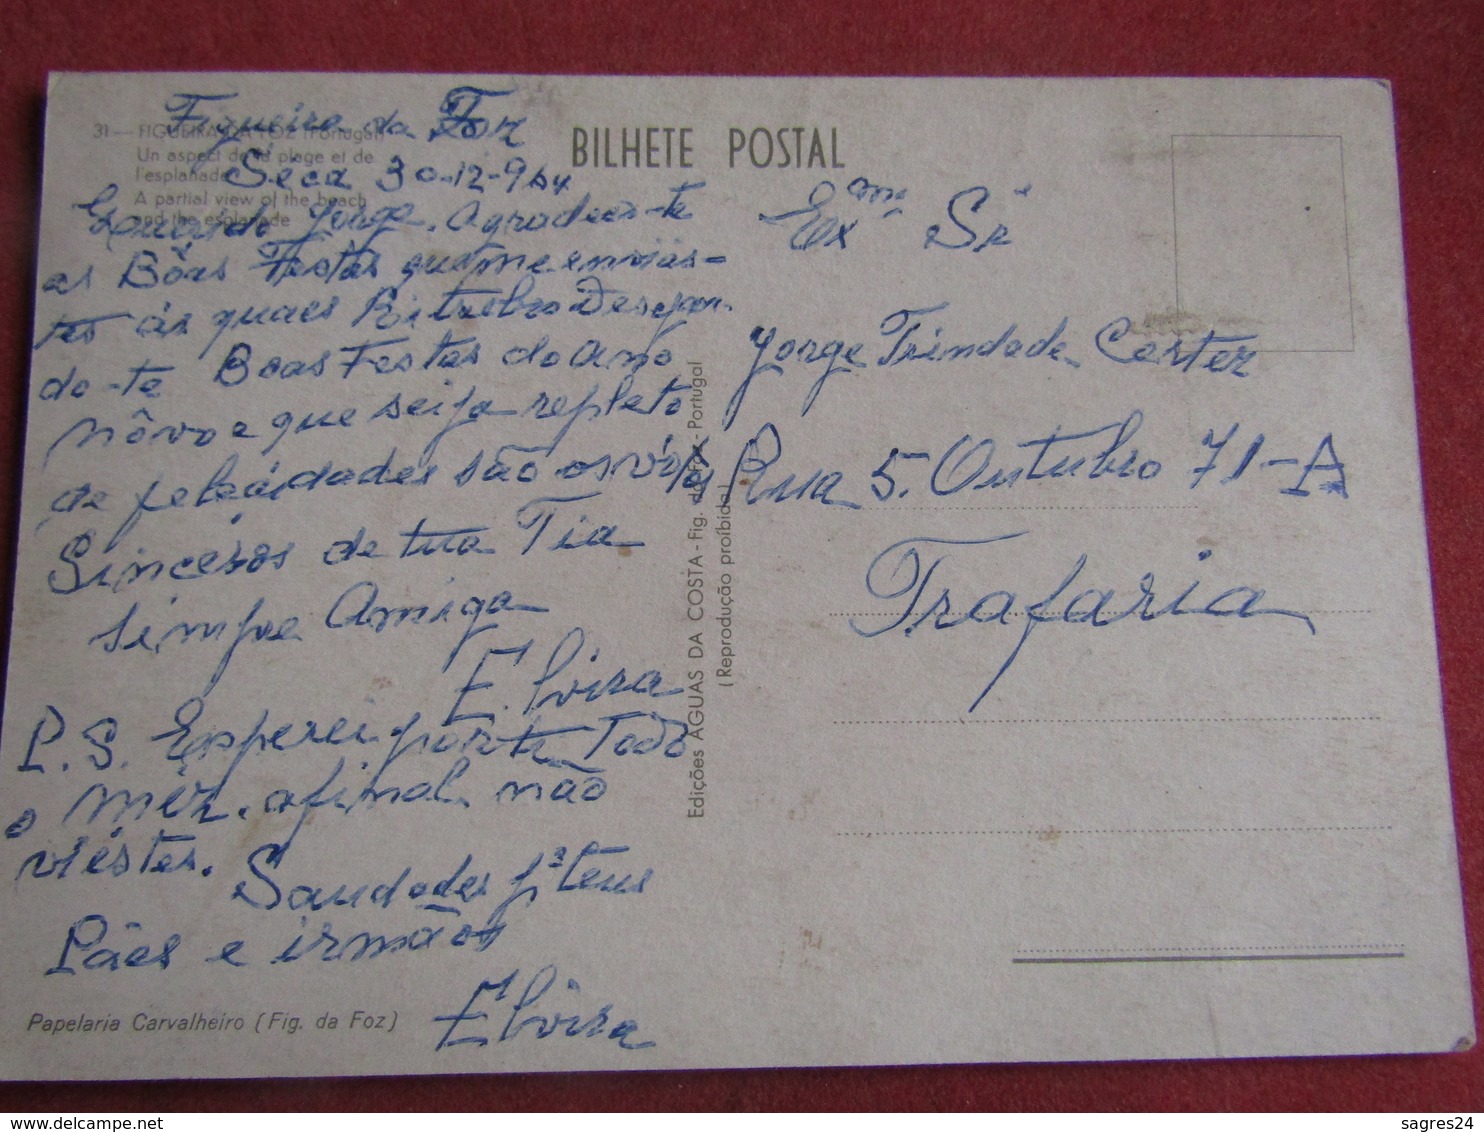 31 — FIGUEIRA DA FOZ (Portugal)
Un aspect de la plage et de
l'esplanade
A partial view of the beach
and the esplanade
BILHETE POSTAL
Figueira da Foz
Seca 30-12-964
Querido Jorge. Agradeço-te
as Bôas Festas que me enviás=
tes ás quaes Ritrebro Desejan.
do-te Boas Festas do Ano
nôvo e que seija repleto
de feleçidades são os vótos
Sinceros de tua Tia
simpre Amiga
Elvira
P.S. Esperei por ti Todo
o mêz. afinal não
viéstes.
Saudades pª teus
Pães e irmãos
Elvira
Exmº Sr
Jorge Trindade Carter
Rua 5. Outubro 71-A
Trafaria
Edições ÁGUAS DA COSTA - Fig. da Foz - Portugal
(Reprodução proíbida)
Papelaria Carvalheiro (Fig. da Foz)
sagres24